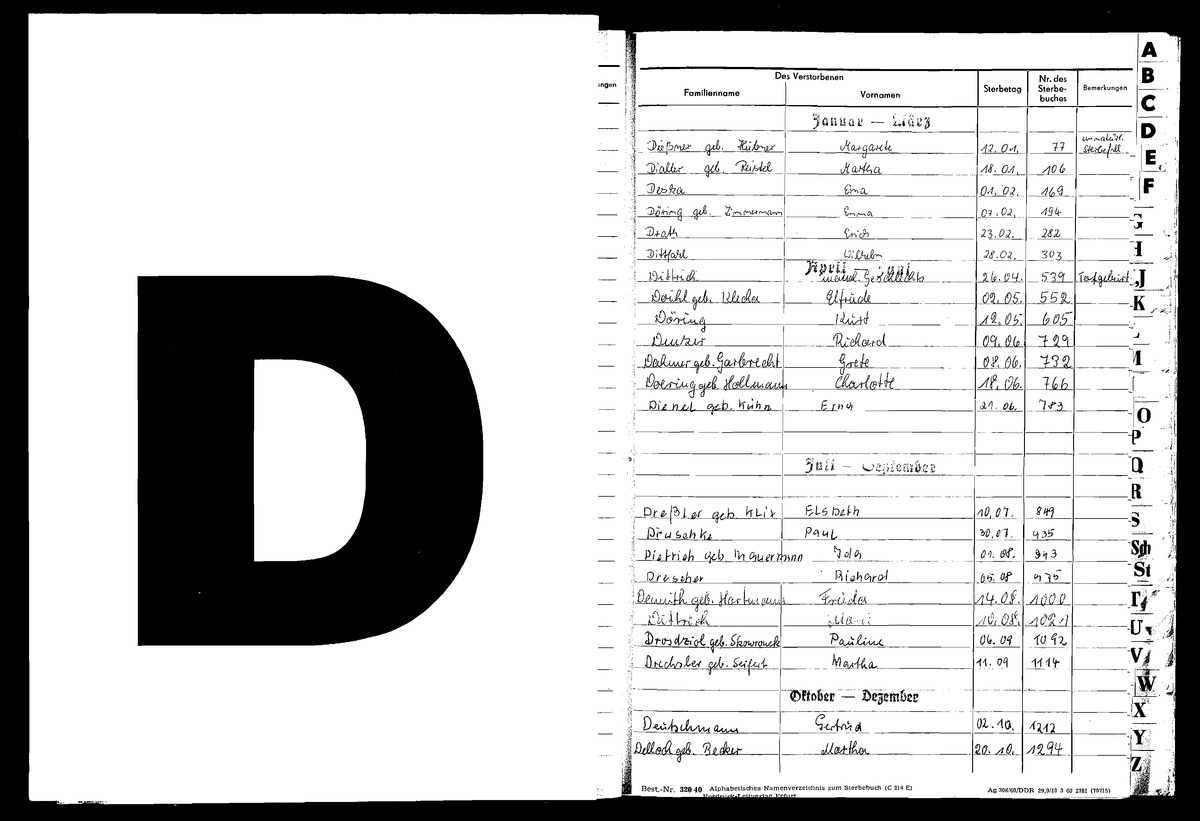 D
ngen
Des Verstorbenen
Familienname Vornamen Sterbetag Nr. des Sterbe- buches Bemerkungen
Januar — März
Dießner geb. Hübner Margarete 12.01. 77 unnatürl. Sterbefall
Dialler geb. 18.01. Martha 106
Deska Erna 01.02. 169
Döring geb. Zimmermann Emma 07.02. 194
Drath Erich 23.02. 282
Dittfarl Wilhelm 28.02. 303
April — Juni
Dittrich männl. Geschlechts 26.04. 539 Totgeburt
Doihl geb. Klecha Elfriede 02.05. 552
Döring Kurt 12.05. 605
Richard 09.06. 729
Dahmer geb. Garbrecht Grete 08.06. 732
Doering geb. Hollmann Charlotte 18.06. 766
Dienel geb. Kühn Erna 21.06. 783
Juli — September
Dreßler geb. Klix Elsbeth 10.07. 849
Druschke Paul 30.07. 935
Dietrich geb. Ida 01.08. 943
Drescher Richard 05.08 975
Demuth geb. Hartmann Frieda 14.08. 1000
Dittrich 10.08. 1021
Drosdziol geb. Skowronek Pauline 06.09 1092
Drechsler geb. Seifert Martha 11.09 1114
Oktober — Dezember
Deutschmann Gertrud 02.10. 1212
Delloch geb. Becker Martha 20.10. 1294
Best.-Nr. 320 40 Alphabetisches Namenverzeichnis zum Sterbebuch (C 214 E) Ag 306/60/DDR
Vordruck-Leitverlag Erfurt
A
B
C
D
E
F
G
H
J
K
L
M
O
P
Q
R
S
Sch
St
T
U
V
W
X
Y
Z